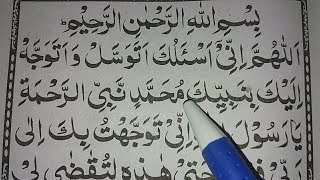 بِسْمِ اللهِ الرَّحْمٰنِ الرَّحِيْمِ
اَللّٰهُمَّ اِنِّىْ اَسْئَلُكَ اَتَوَسَّلُ وَاَتَوَجَّهُ
اِلَيْكَ بِنَبِيِّكَ مُحَمَّدٍ نَّبِىِّ الرَّحْمَةِ
يَا رَسُوْلَ اِنِّىْ تَوَجَّهْتُ بِكَ اِلٰى
هٰذِهٖ لِتُقْضٰى لِىْ